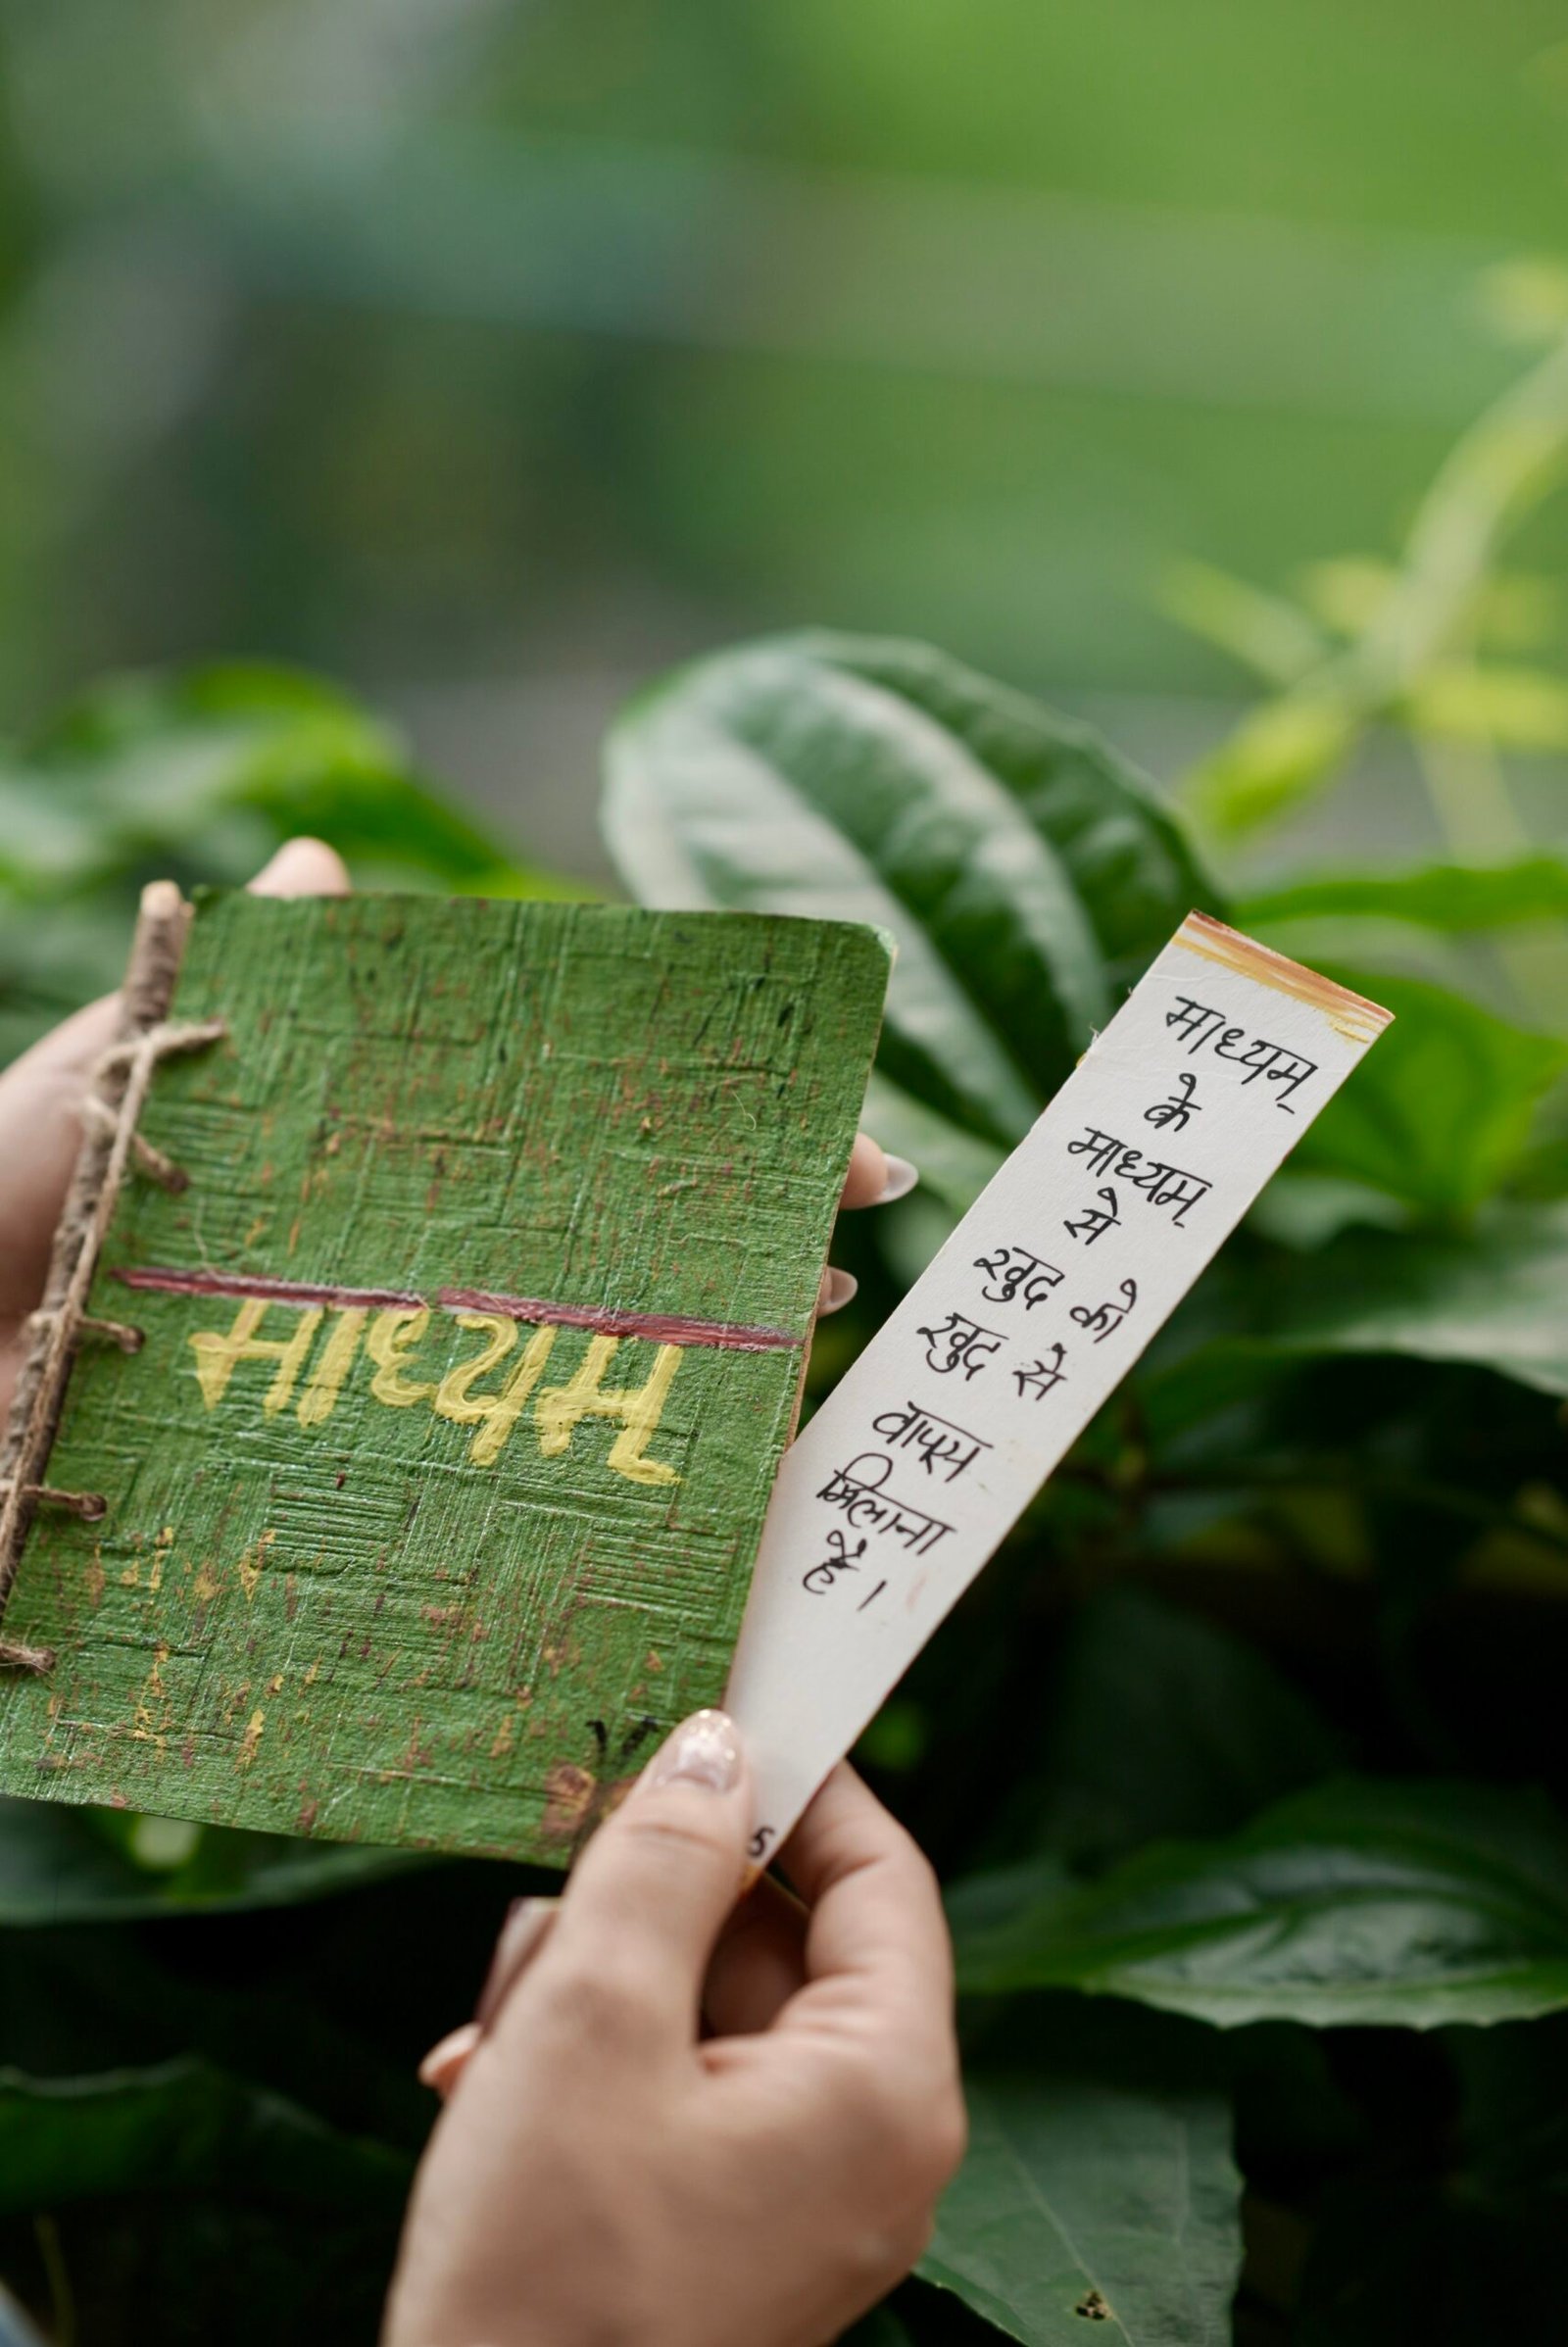 माध्यम्
माध्यम्
के
माध्यम्
से
खुद को
खुद से
वापस
मिलाना
है ।
5